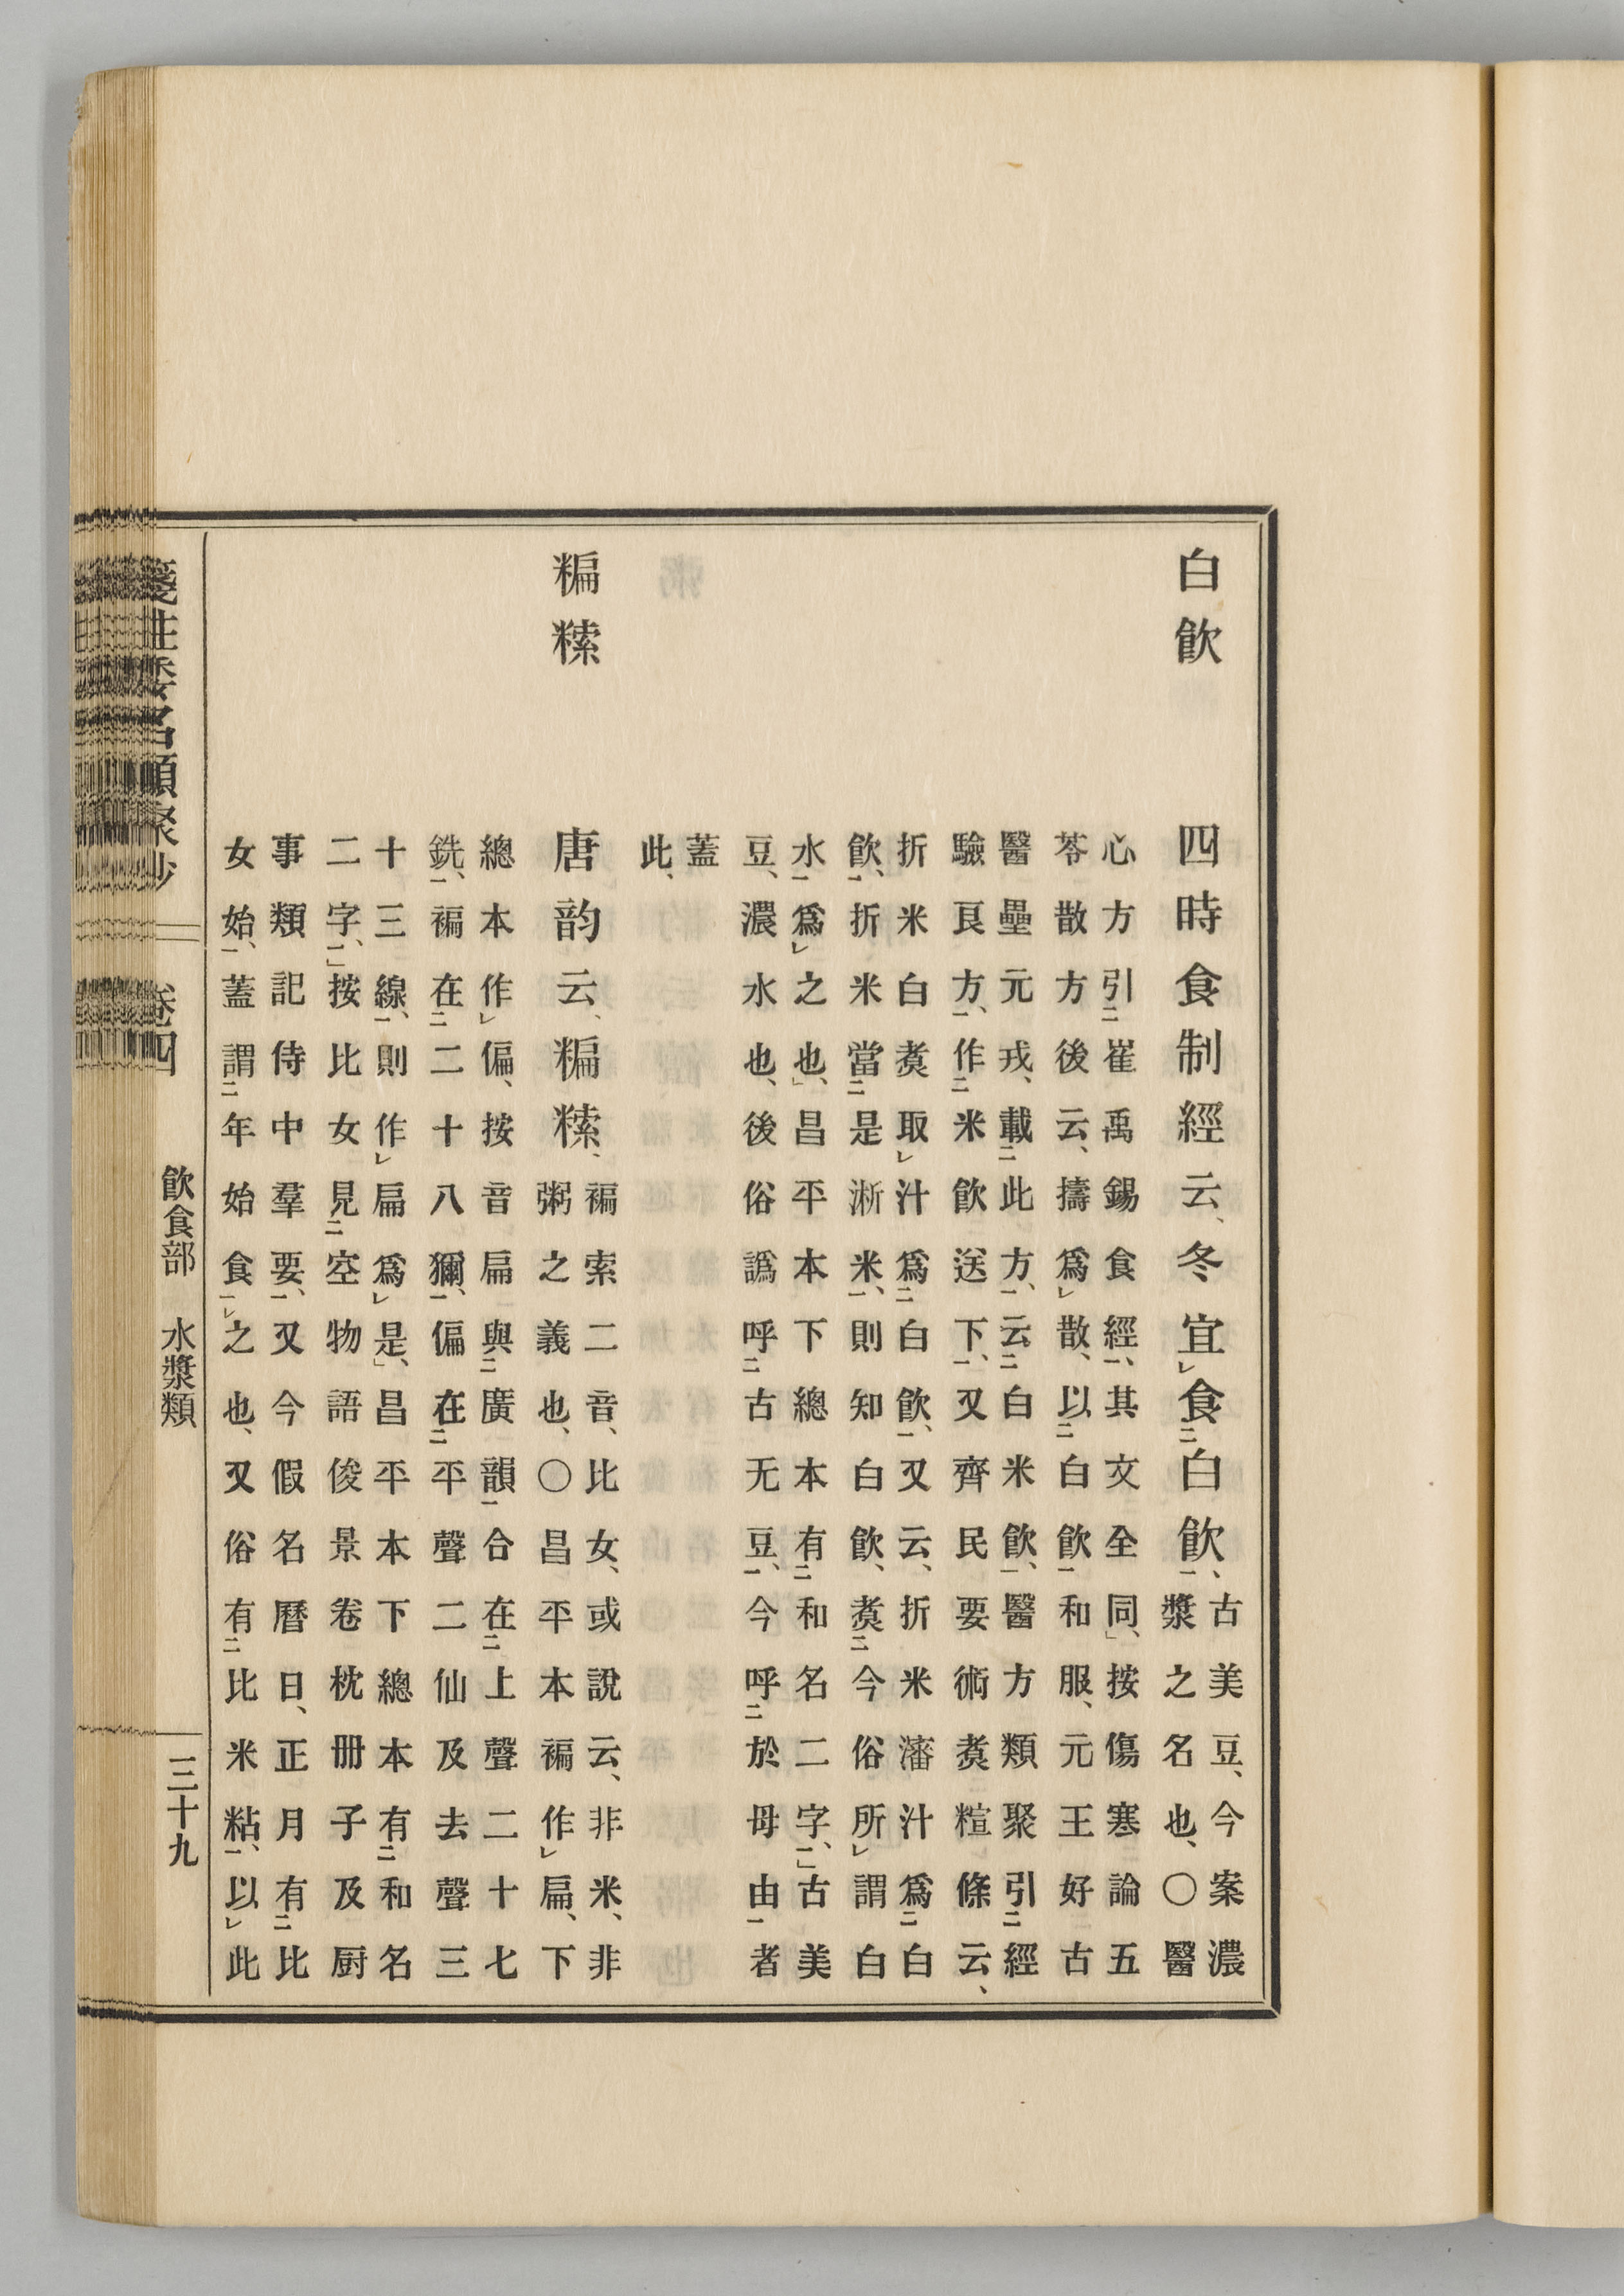 白飮
四時食制經云、冬宜㆑食㆓白飮㆒、
古美豆、今案濃
漿之名也、〇醫
心方引㆓崔禹錫食經㆒、其文全同、按傷寒論五
苓散方後云、擣爲㆑散、以㆓白飮㆒和服、元王好古
醫壘元戎、載㆓此方㆒、云㆓白米飮㆒、醫方類聚引㆓經
驗良方㆒、作㆓米飮送下㆒、又齊民要術煑䊗條云、
折米白煑取㆑汁爲㆓白飮㆒、又云、折米瀋汁爲㆓白
飮㆒、折米當㆓是淅米㆒、則知白飮、煑㆓今俗所㆑謂白
水㆒爲㆑之也、昌平本下總本有㆓和名二字㆒、古美
豆、濃水也、後俗譌呼㆓古无豆㆒、今呼㆓於母由㆒者
蓋
此、
糄䊝
唐韵云、糄䊝、
褊索二音、比女、或說云、非米、非
粥之義也、〇昌平本褊作㆑扁、下
總本作㆑偏、按音扁與㆓廣韻㆒合在㆓上聲二十七
銑㆒、褊在㆓二十八獮㆒、偏在㆓平聲二仙及去聲三
十三線㆒、則作㆑扁爲㆑是、昌平本下總本有㆓和名
二字㆒、按比女見㆓空物語俊景卷枕册子及厨
事類記侍中羣要㆒、又今假名曆日、正月有㆓比
女始㆒、蓋謂㆓年始食㆒㆑之也、又俗有㆓比米粘㆒、以㆑此
箋注倭名類聚抄
卷四
飮食部 水漿類
三十九